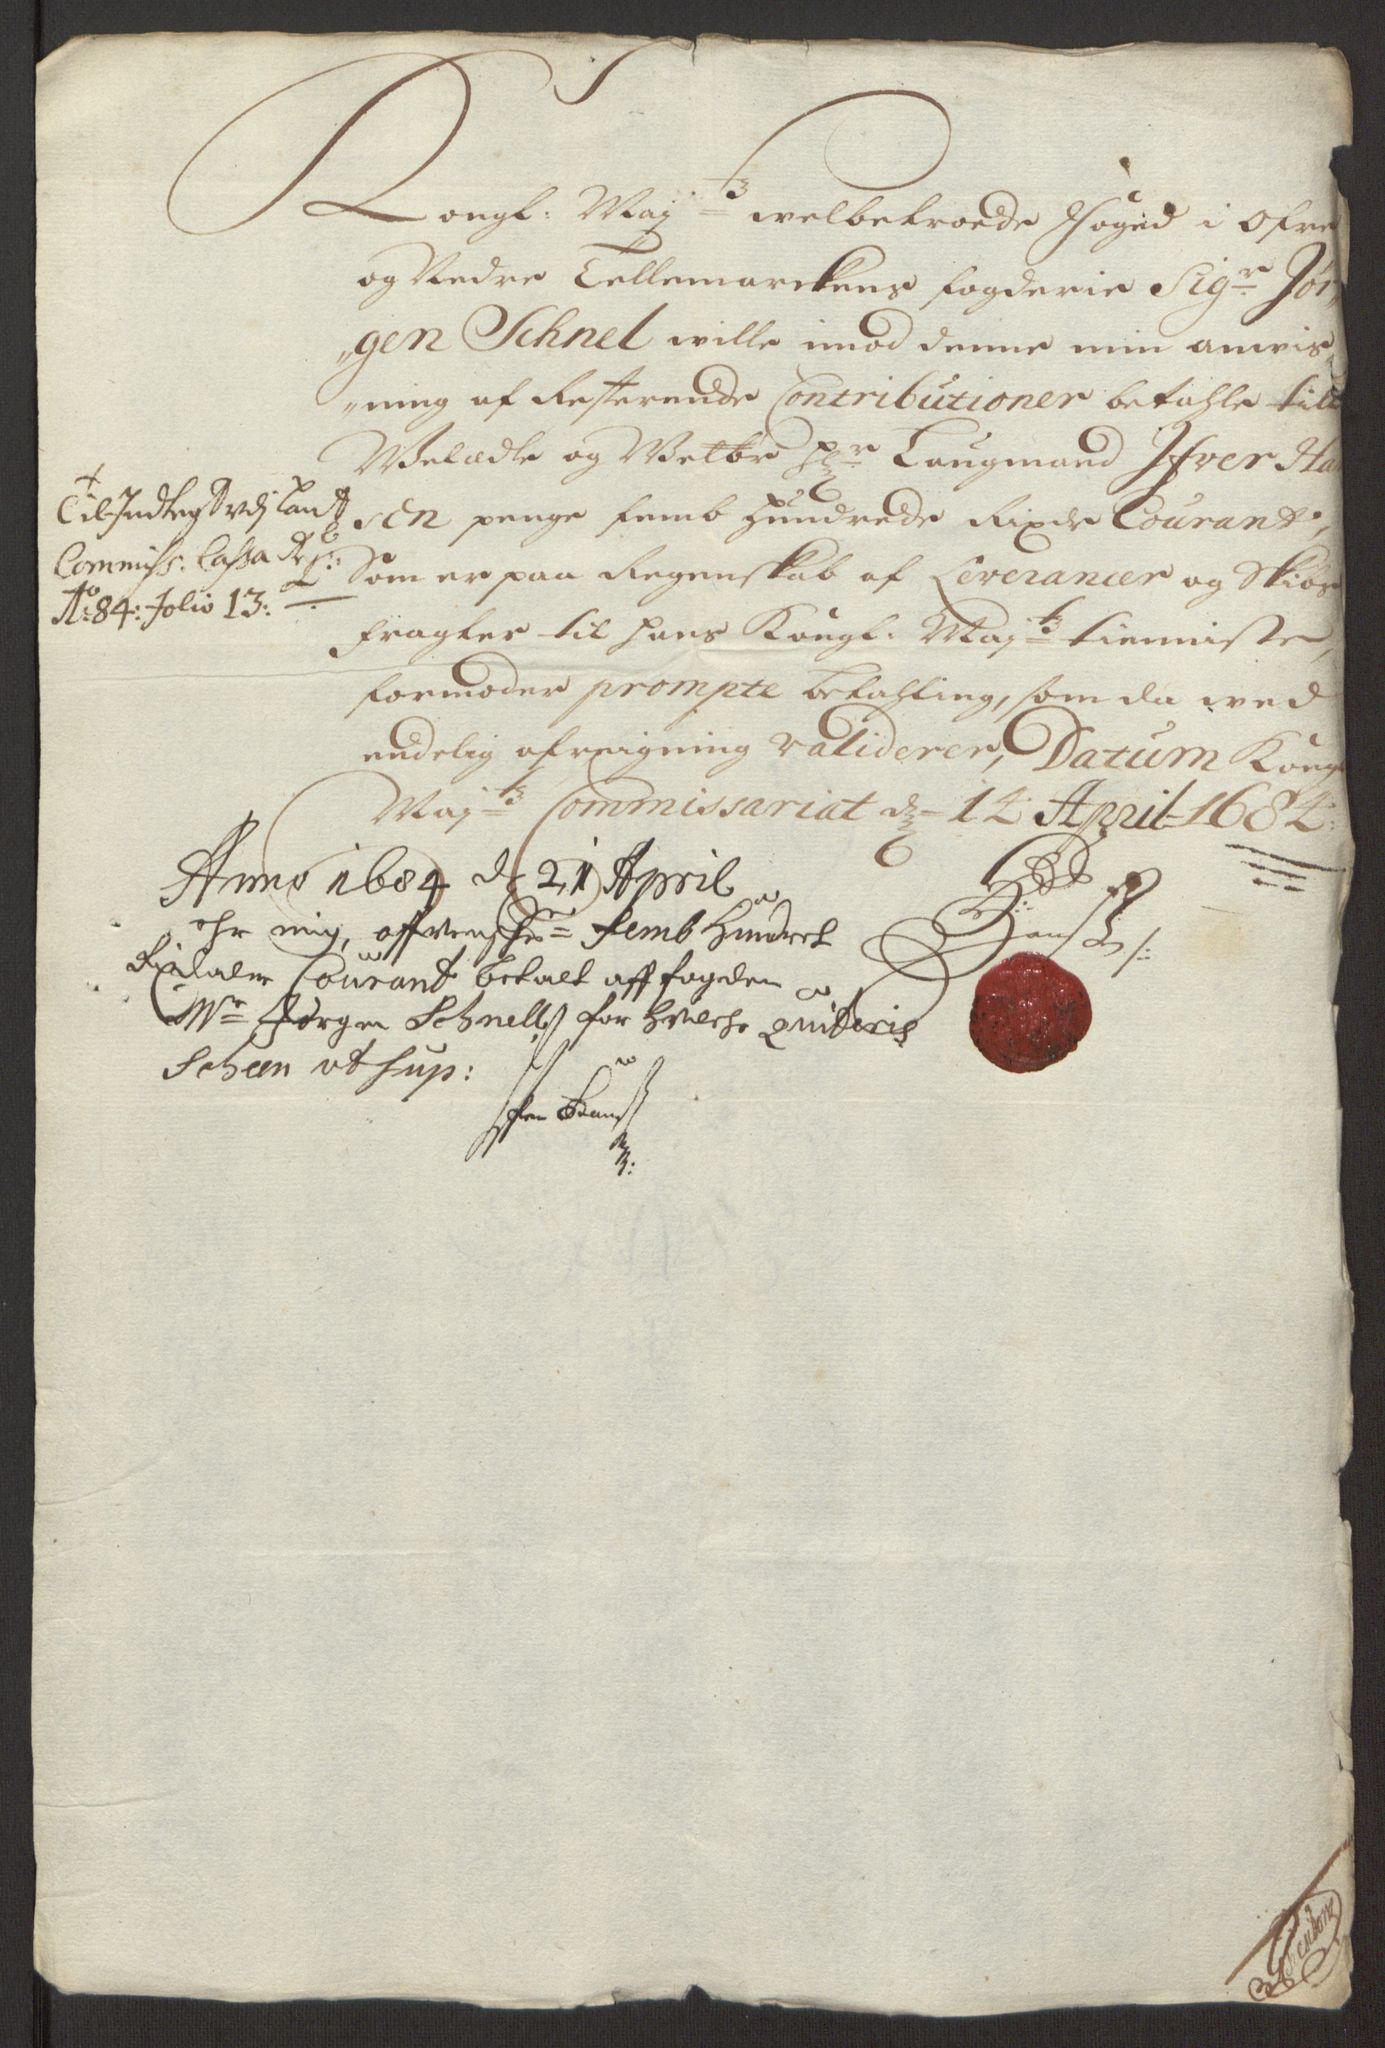 Kongl: Maij:ts welbetroede Foged i Øfre
og Nedre Tellemarckens fogderie Sig:r Jør,,
,,gen Schnel wille imod denne min anwis,,
,,ning af Resterende Contributioner betahle till
Welædle og Welbr H:r Laugmand Ifver Han
sen penge femb Hundrede Rixdr Courant,
Som er paa Regenskab af Leverancer og Skibs
fragter til Hans Kongl: Maj:ts tienniste,
formoder prompte betahling, som da wed
endelig afreigning validerer, Datum Kongl
Maj:ts Commissariat d: 14 April 1684:
Hans
Til Indtegt vdj Land
Commiss: Cassa
Ao: 84: Folio 13:
Anno 1684 d 21 April
ehr mig, femb Hundret
Rixdaler Courant betalt aff fogden
Mr Jørgen Schnell for Hvilche Quiteris
Scheen vt sup:
Ifver Hans